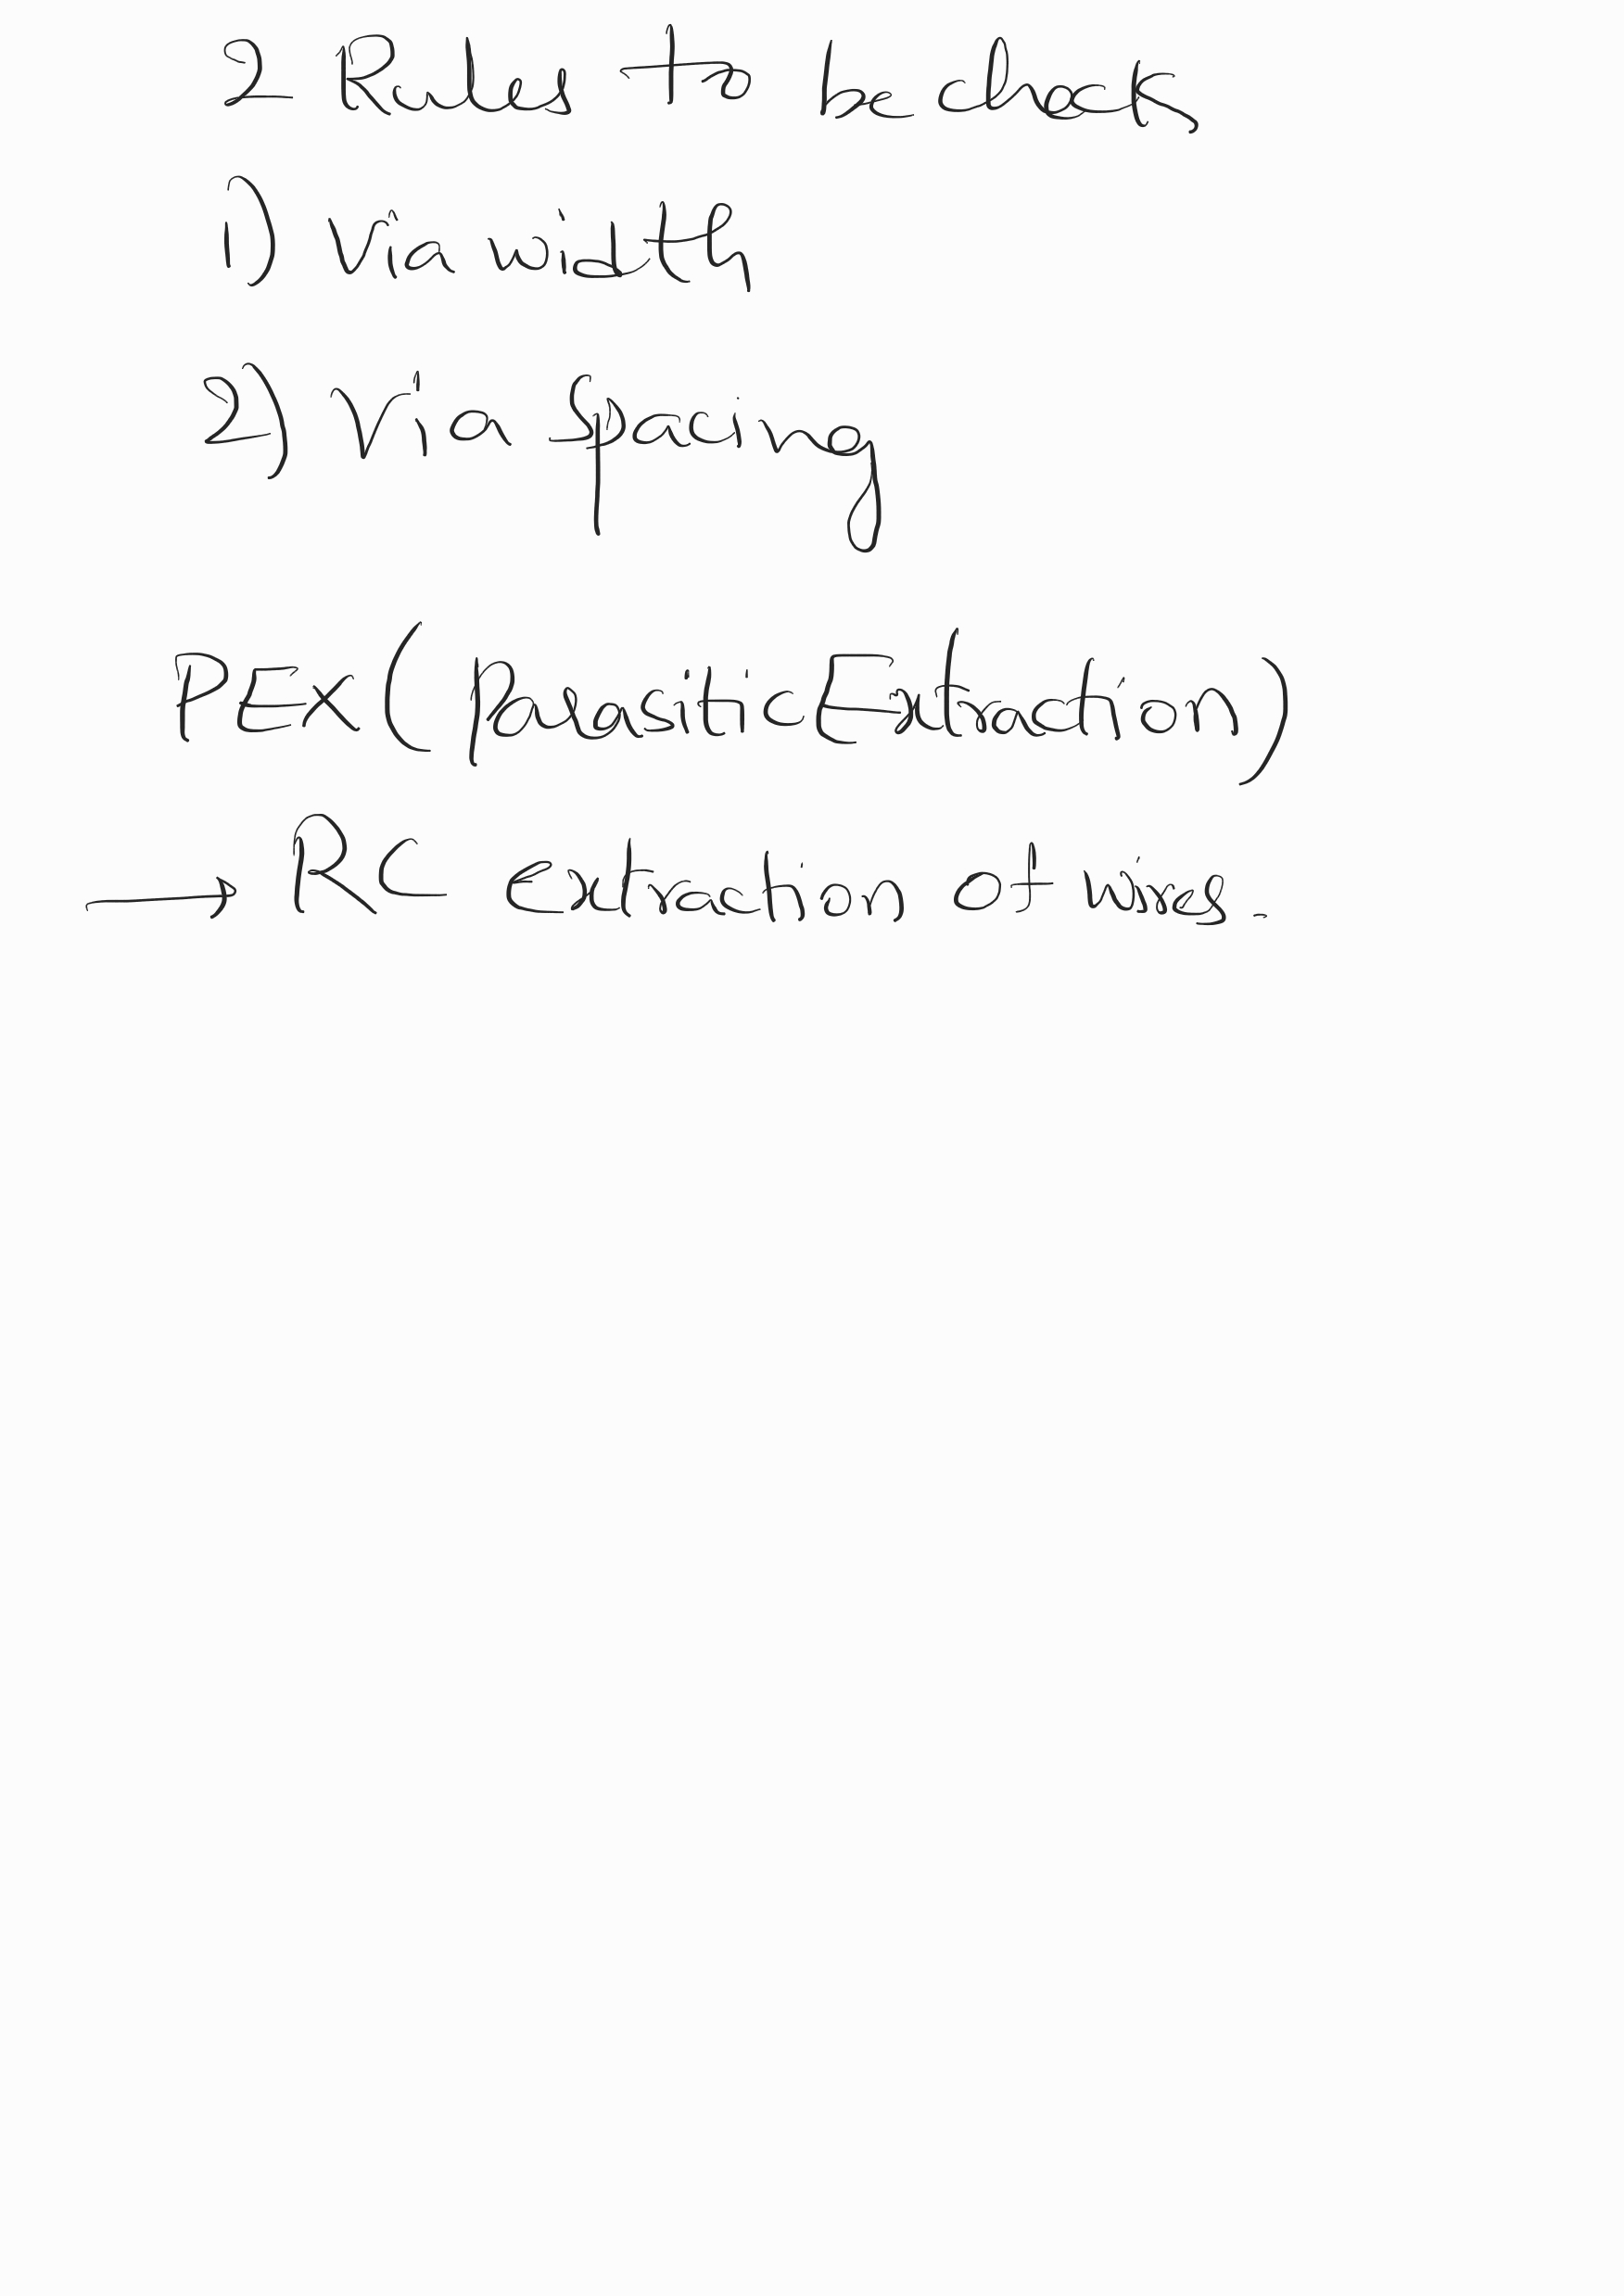 2 Rules to be check
1) Via width
2) Via Spacing
PEX (Parasitic Extraction)
→ RC extraction of wires.